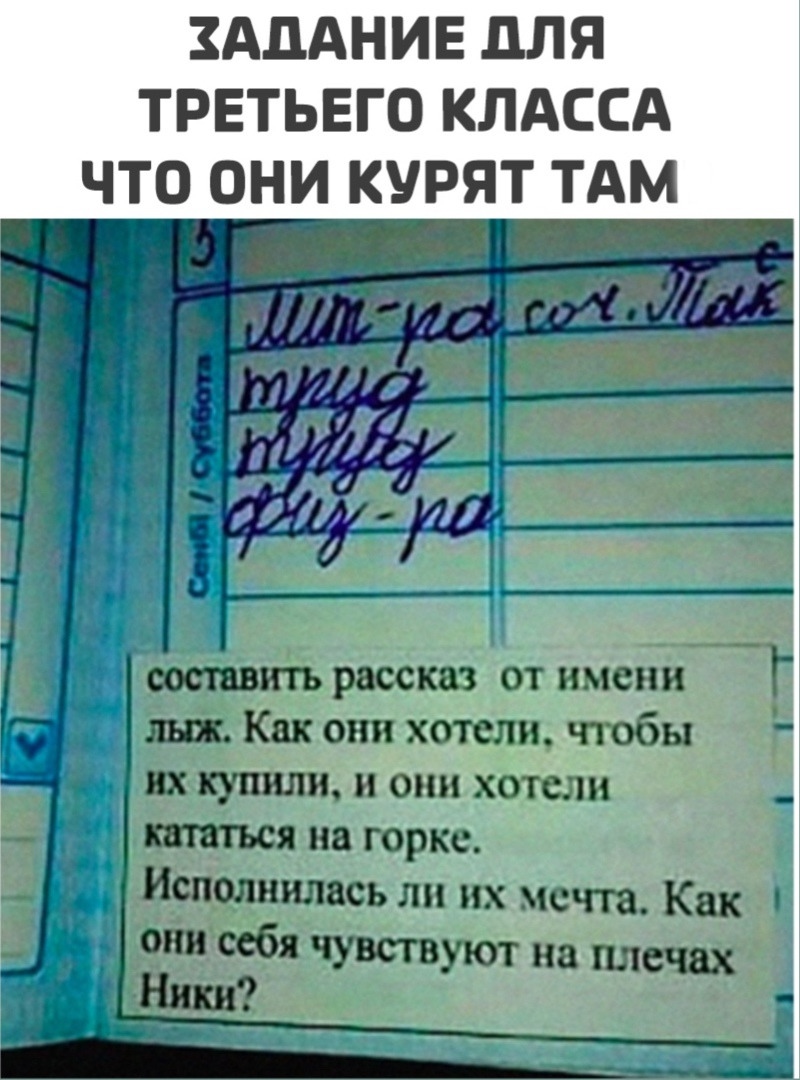 ЗАДАНИЕ ДЛЯ
ТРЕТЬЕГО КЛАССА
ЧТО ОНИ КУРЯТ ТАМ
Сенбі / Суббота
лит-ра соч.
труд
труд
физ-ра
составить рассказ от имени
лыж. Как они хотели, чтобы
их купили, и они хотели
кататься на горке.
Исполнилась ли их мечта. Как
они себя чувствуют на плечах
Ники?